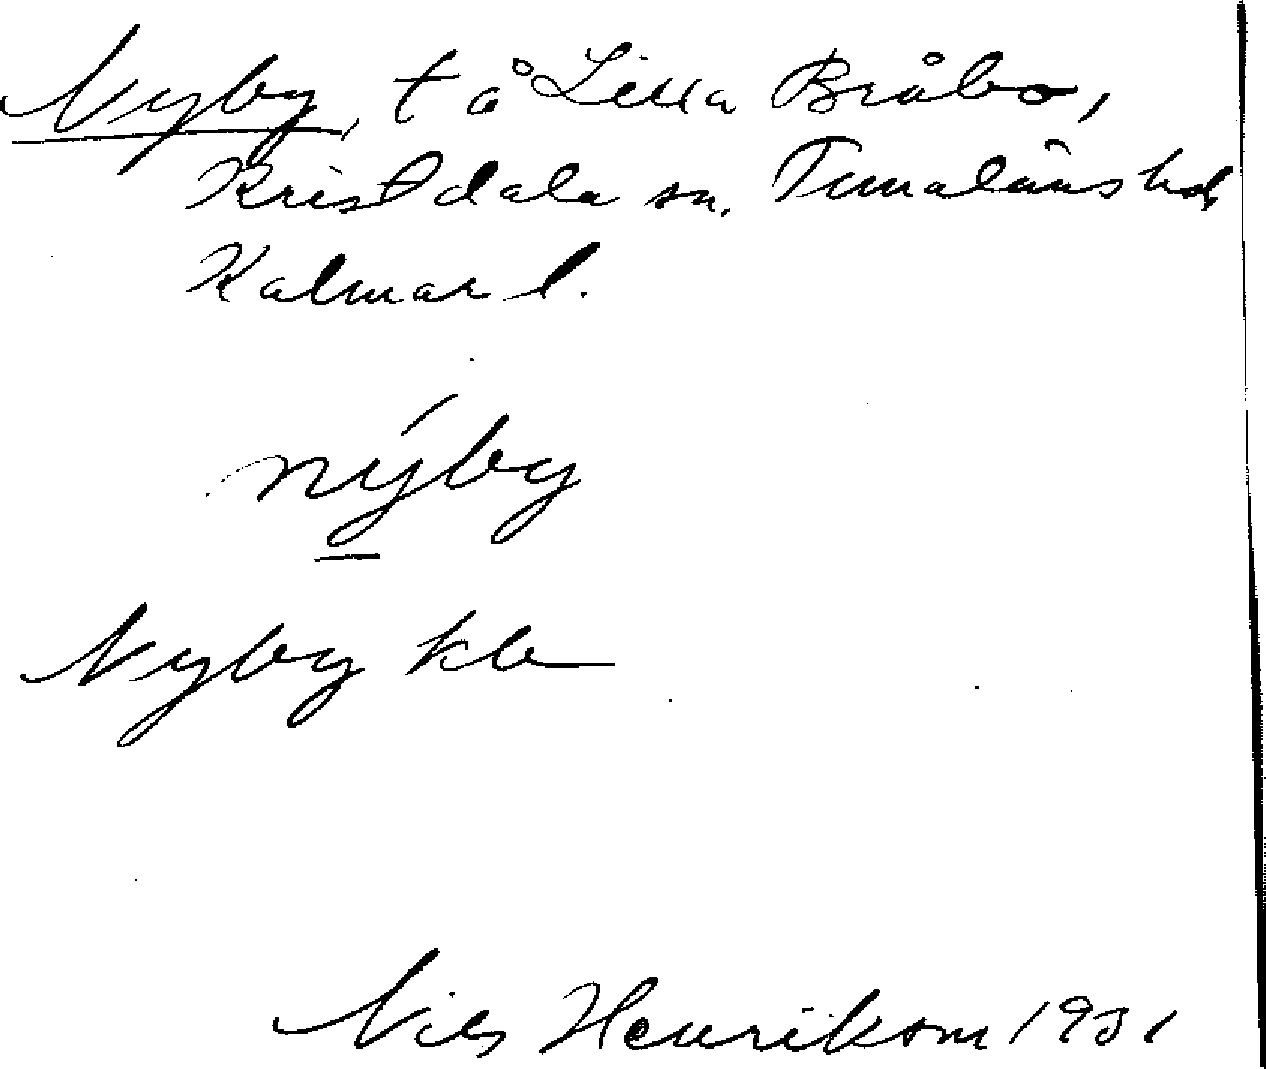 Nyby, t å Lilla Bråbo,
Kristdala sn. Tunaläns hd,
Kalmar l.
nýby
Nyby kb
Nils Henrikson 1931